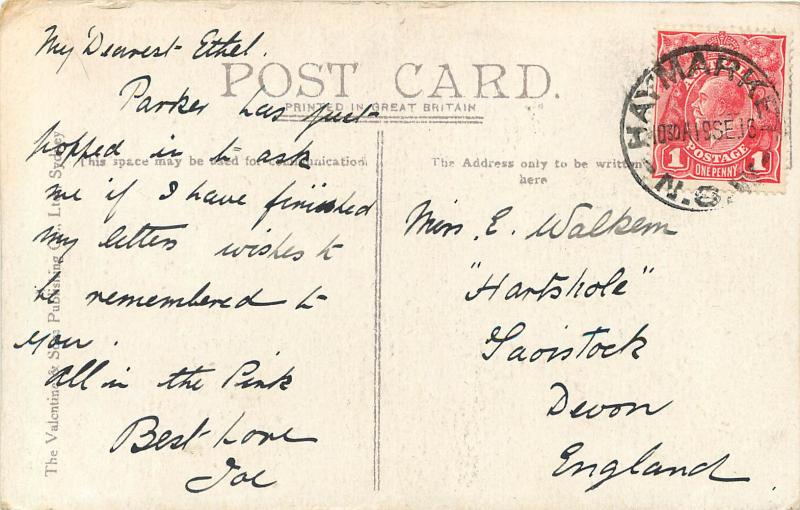 My Dearest Ethel.
POST CARD.
PRINTED IN GREAT BRITAIN
Parker has just
popped in to ask
This space may be used for communication
me if I have finished
my letters wishes to
be remembered to
you.
All in the Pink
Best Love
Joe
The Valentine & Sons Publishing Co., Ltd. Sydney
The Address only to be written
here
Miss. E. Walkem
"Hartshole"
Tavistock
Devon
England.
HAYMARKET
1030A 19SE16
N.S.W
1 POSTAGE 1
ONE PENNY